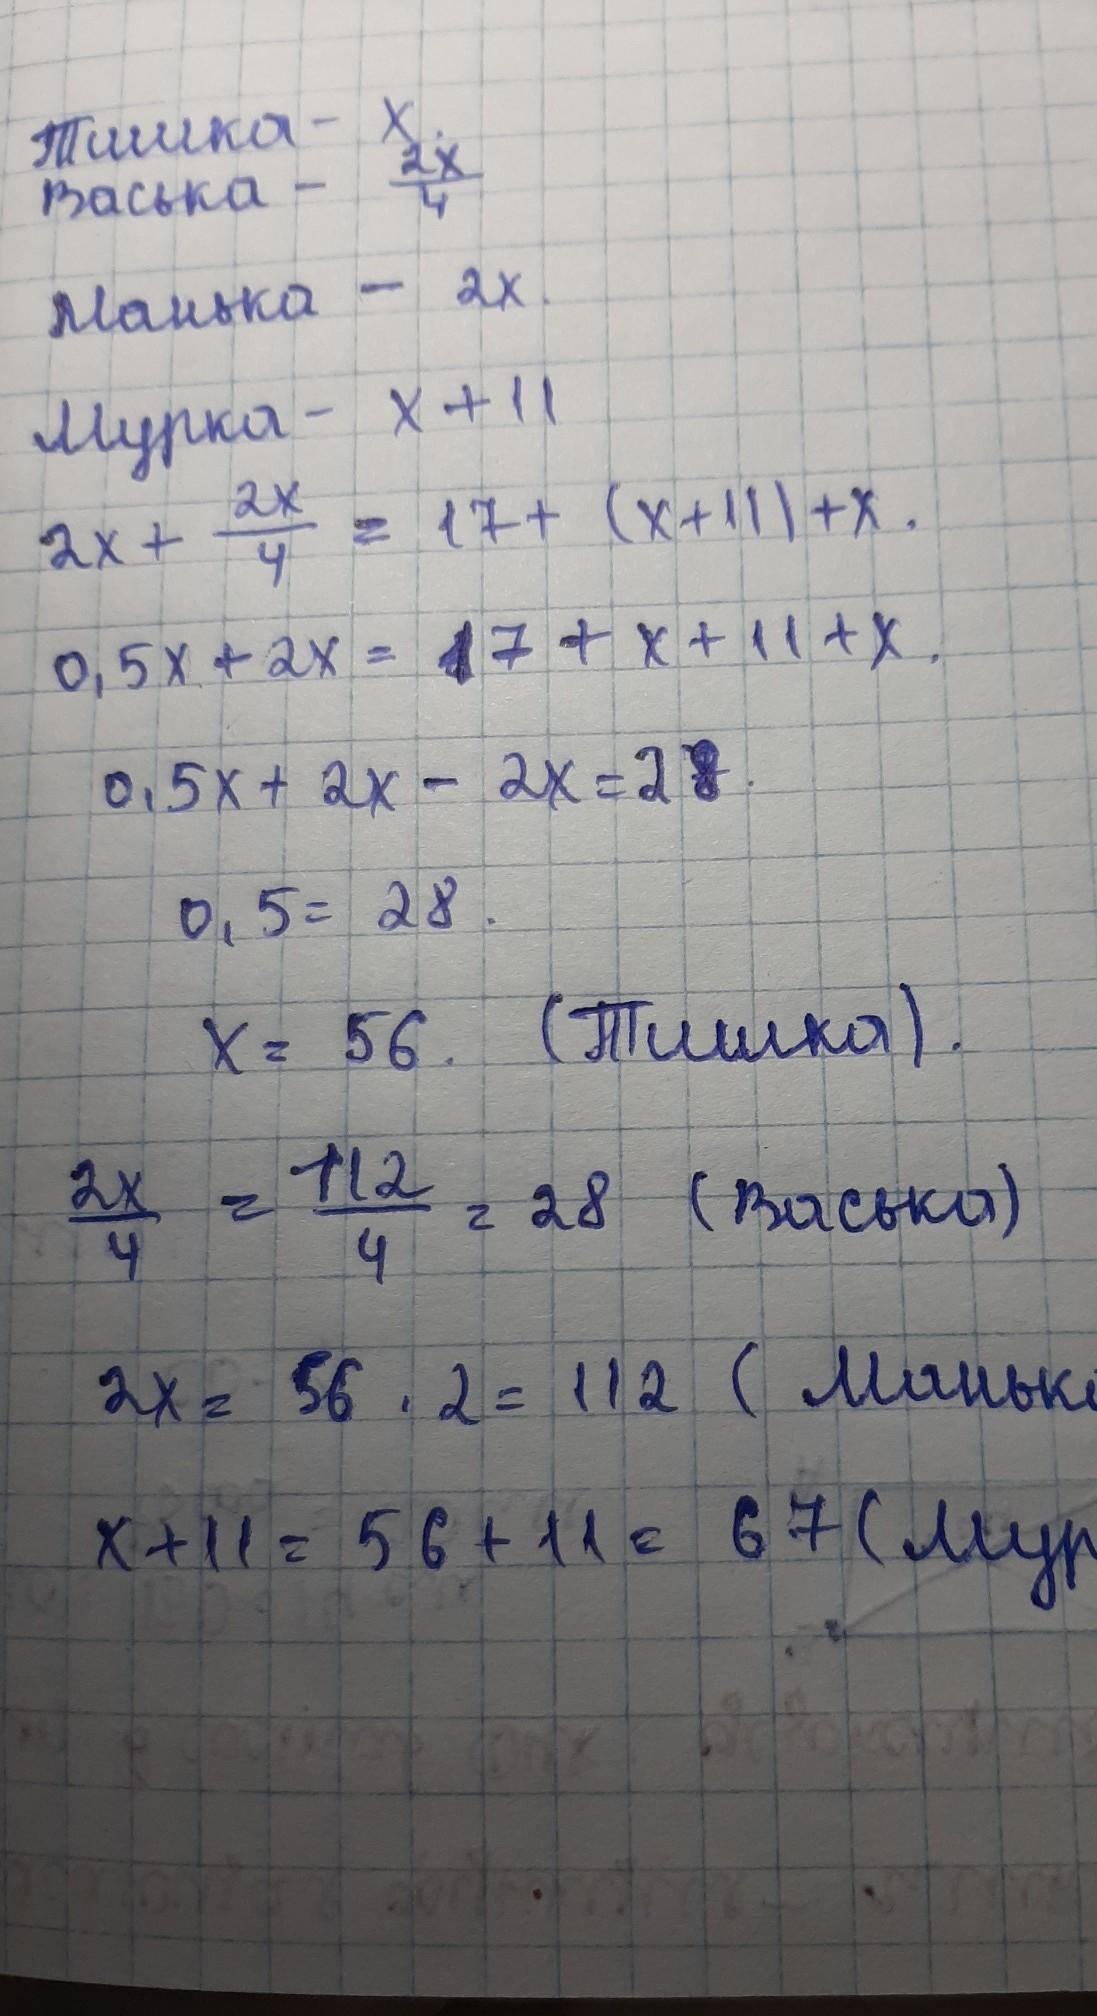 Тишка - x.
Васька - 2x/4
Манька - 2x.
Мурка - x + 11
2x + 2x/4 = 17 + (x+11) + x.
0,5x + 2x = 17 + x + 11 + x.
0,5x + 2x - 2x = 28.
0,5 = 28.
x = 56. (Тишка).
2x/4 = 112/4 = 28 (Васька)
2x = 56 · 2 = 112 ( Манька
x + 11 = 56 + 11 = 67 ( Мур